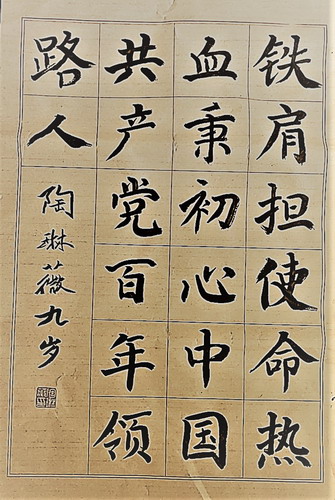 铁肩担使命热
血秉初心中国
共产党百年领
路人
陶琳薇九岁